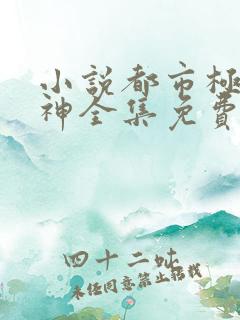 小説都市極
神全集免費
四十二吆
未经同意禁止搭载